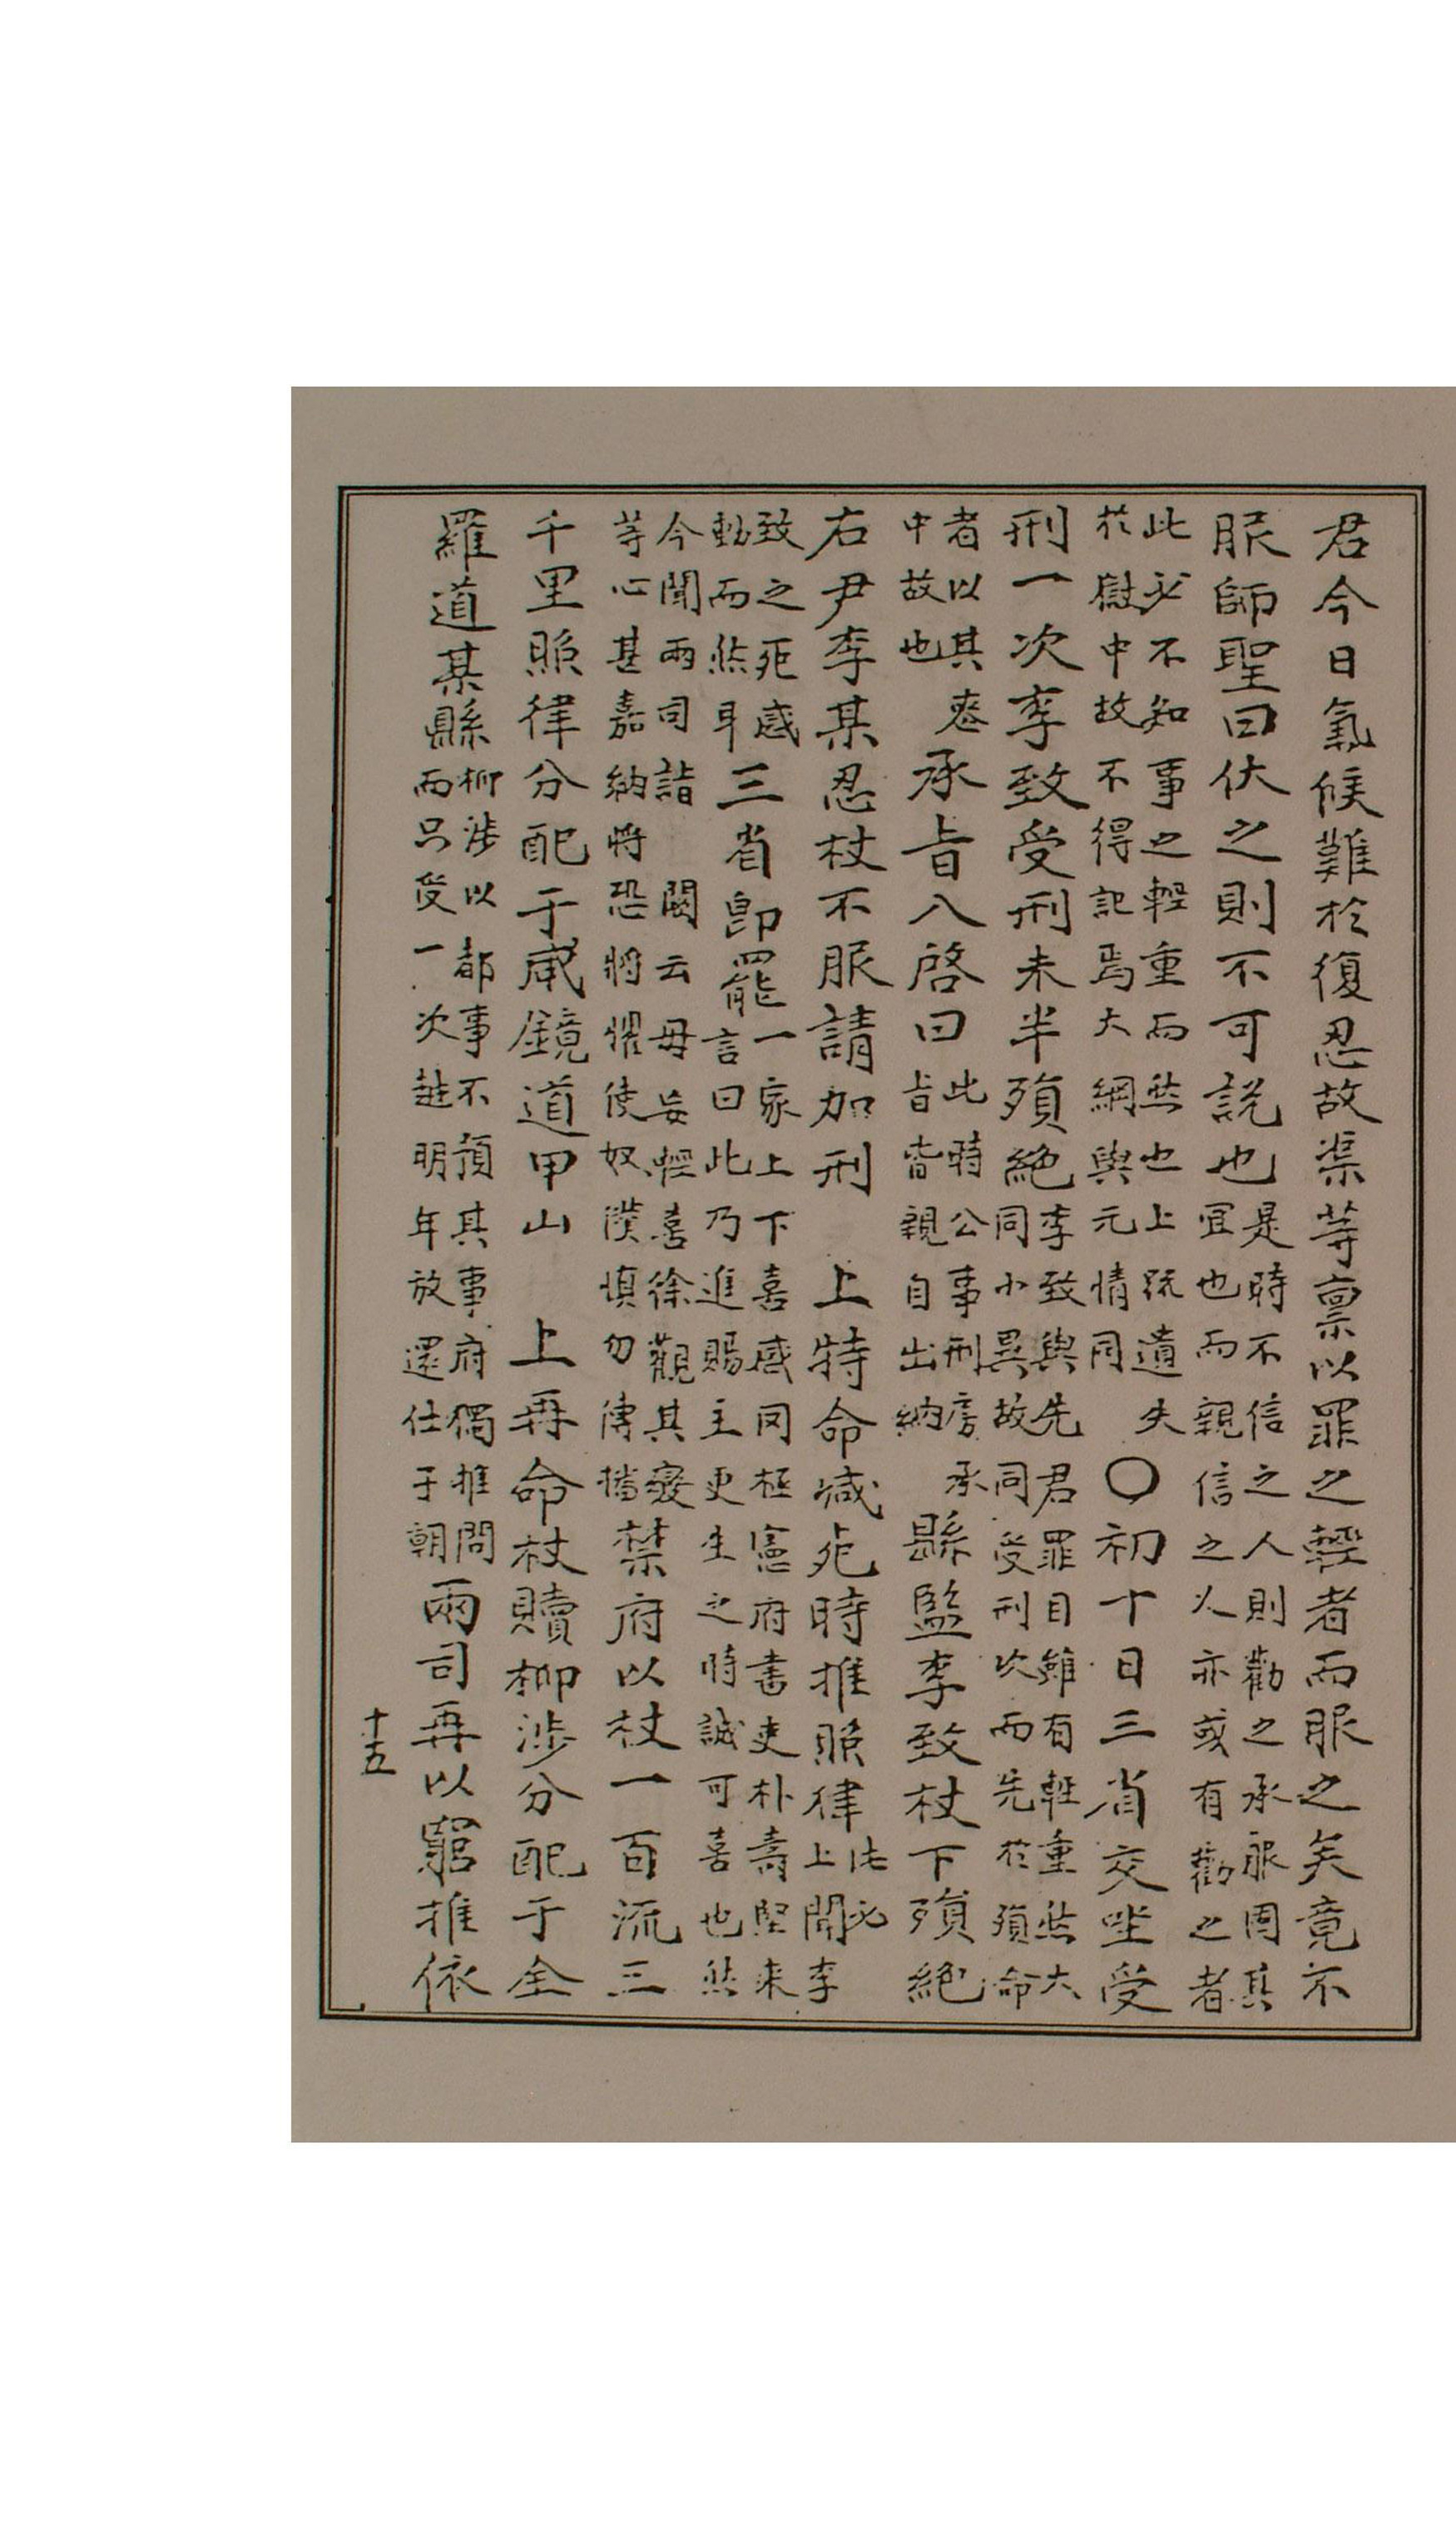 君今日氣候難於復忍故渠等稟以罪之輕者而服之矣竟不
服師聖曰伏之則不可說也
是時不信之人則勸之承服因其
宜也而親信之人亦或有勸之者
此必不知事之輕重而然也上疏遺失
於慰中故不得記焉大綱與元情同
○初十日三省交坐受
刑一次李致受刑未半殞絶
李致與先君罪目雖有輕重然大
同小異故同受刑次而先於殞命
者以其
中故也
承旨八啓曰
此時公事刑房承
旨皆親自出納
縣監李致杖下殞絶
右尹李某忍杖不服請加刑 上特命减死時推照律
此必上聞李
致之死感
動而然耳
三省卽罷
一家上下喜感罔極憲府書吏朴壽堅来
言曰此乃進賜主更生之時誠可喜也然
今聞兩司詣 闕云毋妄輕喜徐觀其變
等心甚嘉納將恐將懼使奴僕愼勿傳播
禁府以杖一百流三
千里照律分配于咸鏡道甲山 上再命杖贖柳涉分配于全
羅道某縣
柳涉以都事不預其事府獨推問
而只受一次越明年放還仕于朝
兩司再以窮推依
十五